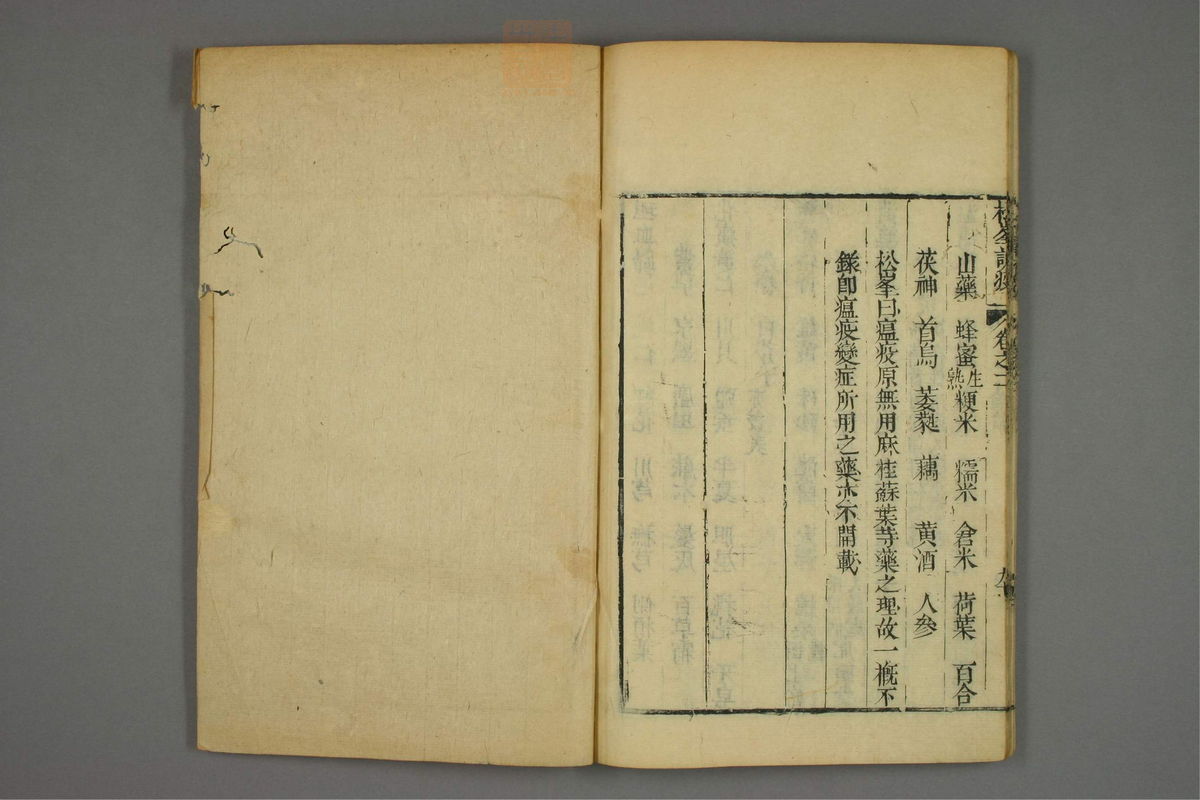 松峯說疫 卷之二 九
山藥 蜂蜜生熟 粳米 糯米 倉米 荷葉 百合
茯神 首烏 萎蕤 藕 黄酒 人參
松峯曰瘟疫原無用麻桂蘇葉等藥之理故一槪不
錄卽瘟疫變症所用之藥亦不開載